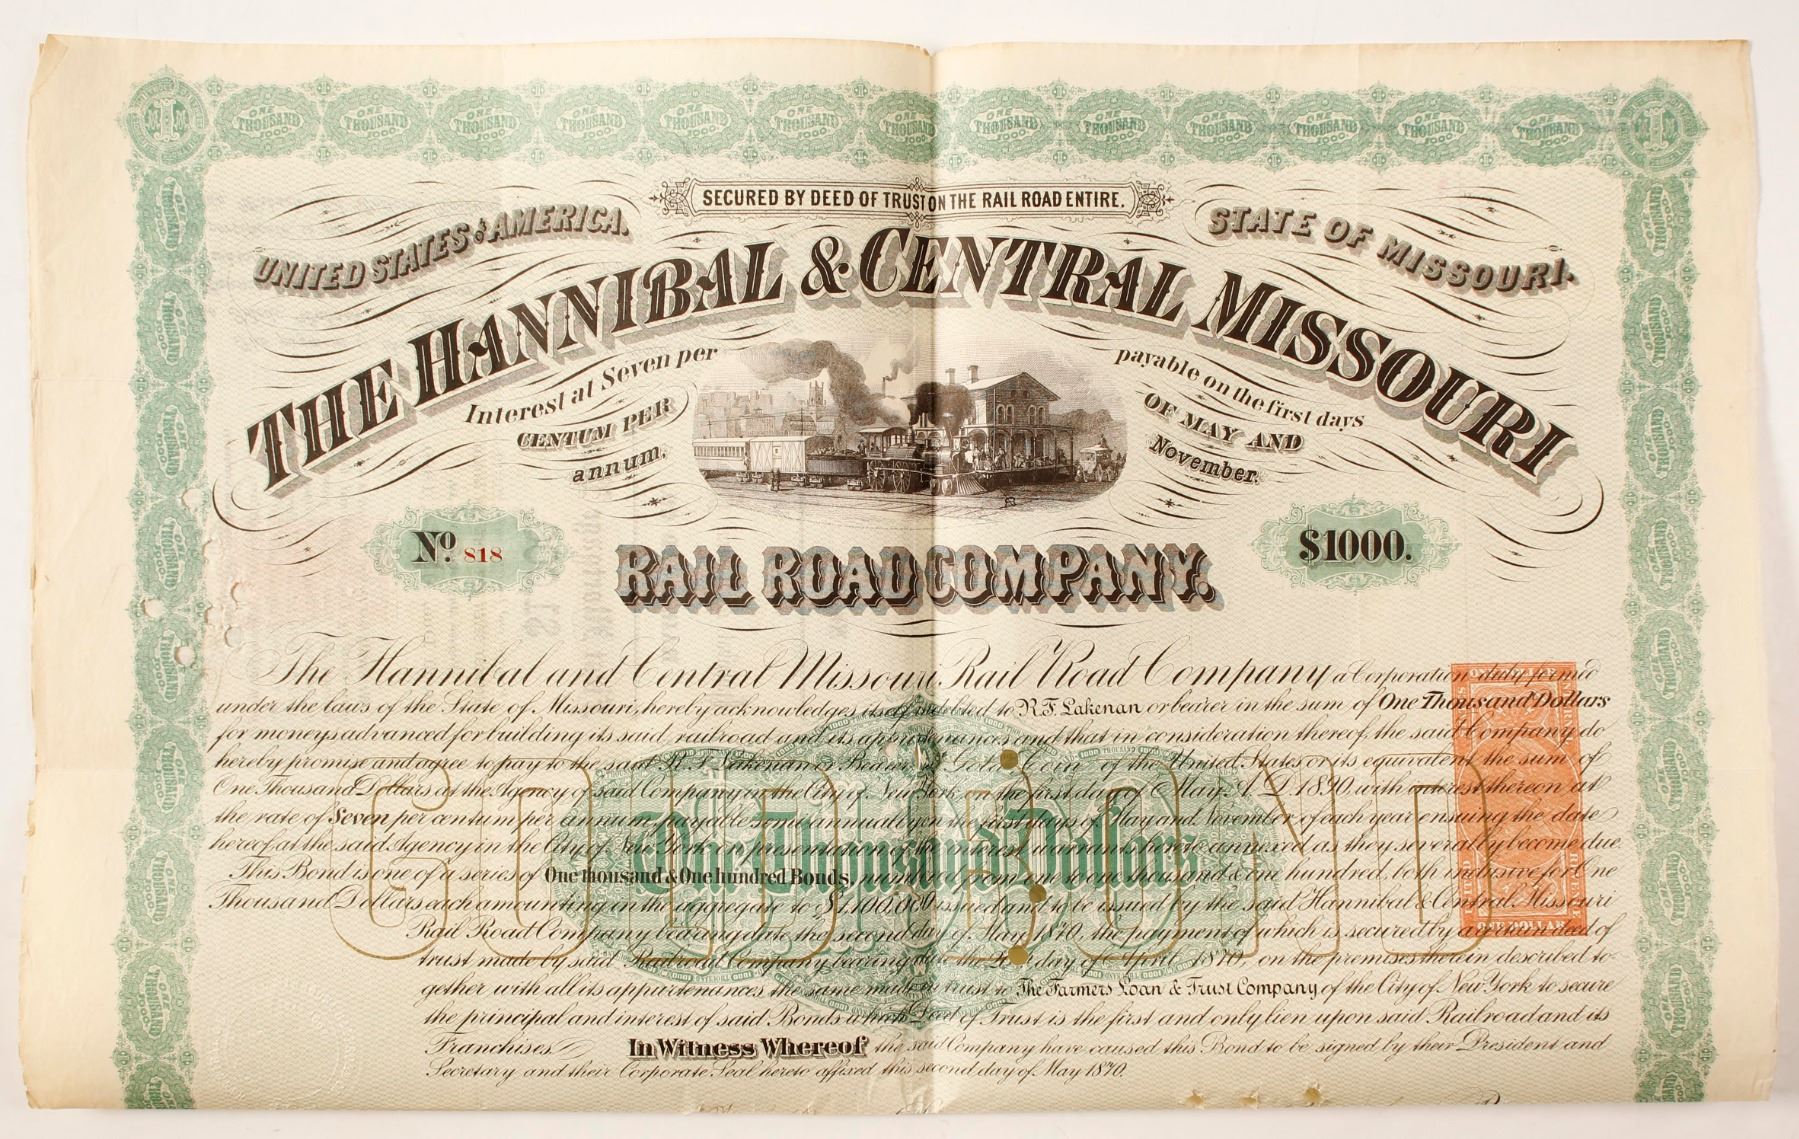 SECURED BY DEED OF TRUST ON THE RAIL ROAD ENTIRE.
UNITED STATES of AMERICA.
STATE OF MISSOURI.
THE HANNIBAL & CENTRAL MISSOURI
Interest at Seven per
CENTUM PER
annum.
payable on the first days
OF MAY AND
November.
No. 818
$1000.
RAIL ROAD COMPANY.
The Hannibal and Central Missouri Rail Road Company a Corporation duly formed
under the laws of the State of Missouri, hereby acknowledges itself indebted to R.F. Lakenan or bearer in the sum of One Thousand Dollars
for moneys advanced for building its said railroad and its appurtenances and that in consideration thereof, the said Company do
hereby promise and agree to pay to the said R.F. Lakenan or Bearer in Gold Coin of the United States or its equivalent the sum of
One Thousand Dollars at the Agency of said Company in the City of New York, on the first day of May A.D. 1890, with interest thereon at
the rate of Seven per centum per annum payable semi annually on the first days of May and November of each year ensuing the date
hereof, at the said Agency in the City of New York on presentation of the interest warrants hereto annexed as they severally become due.
This Bond is one of a series of One thousand & One hundred Bonds, numbered from one to one thousand & one hundred, both inclusive for One
Thousand Dollars each amounting in the aggregate to $1,100,000 issued and to be issued by the said Hannibal & Central Missouri
Rail Road Company bearing date the second day of May 1870, the payment of which is secured by a certain deed of
trust made by said Railroad Company bearing date the day of April 1870, on the premises therein described to-
gether with all its appurtenances the same made in trust to The Farmers Loan & Trust Company of the City of New York to secure
the principal and interest of said Bonds which Deed of Trust is the first and only lien upon said Railroad and its
Franchises. In Witness Whereof the said Company have caused this Bond to be signed by their President and
Secretary and their Corporate Seal hereto affixed this second day of May 1870.
GOLD BOND
One Thousand Dollars
ONE THOUSAND 1000